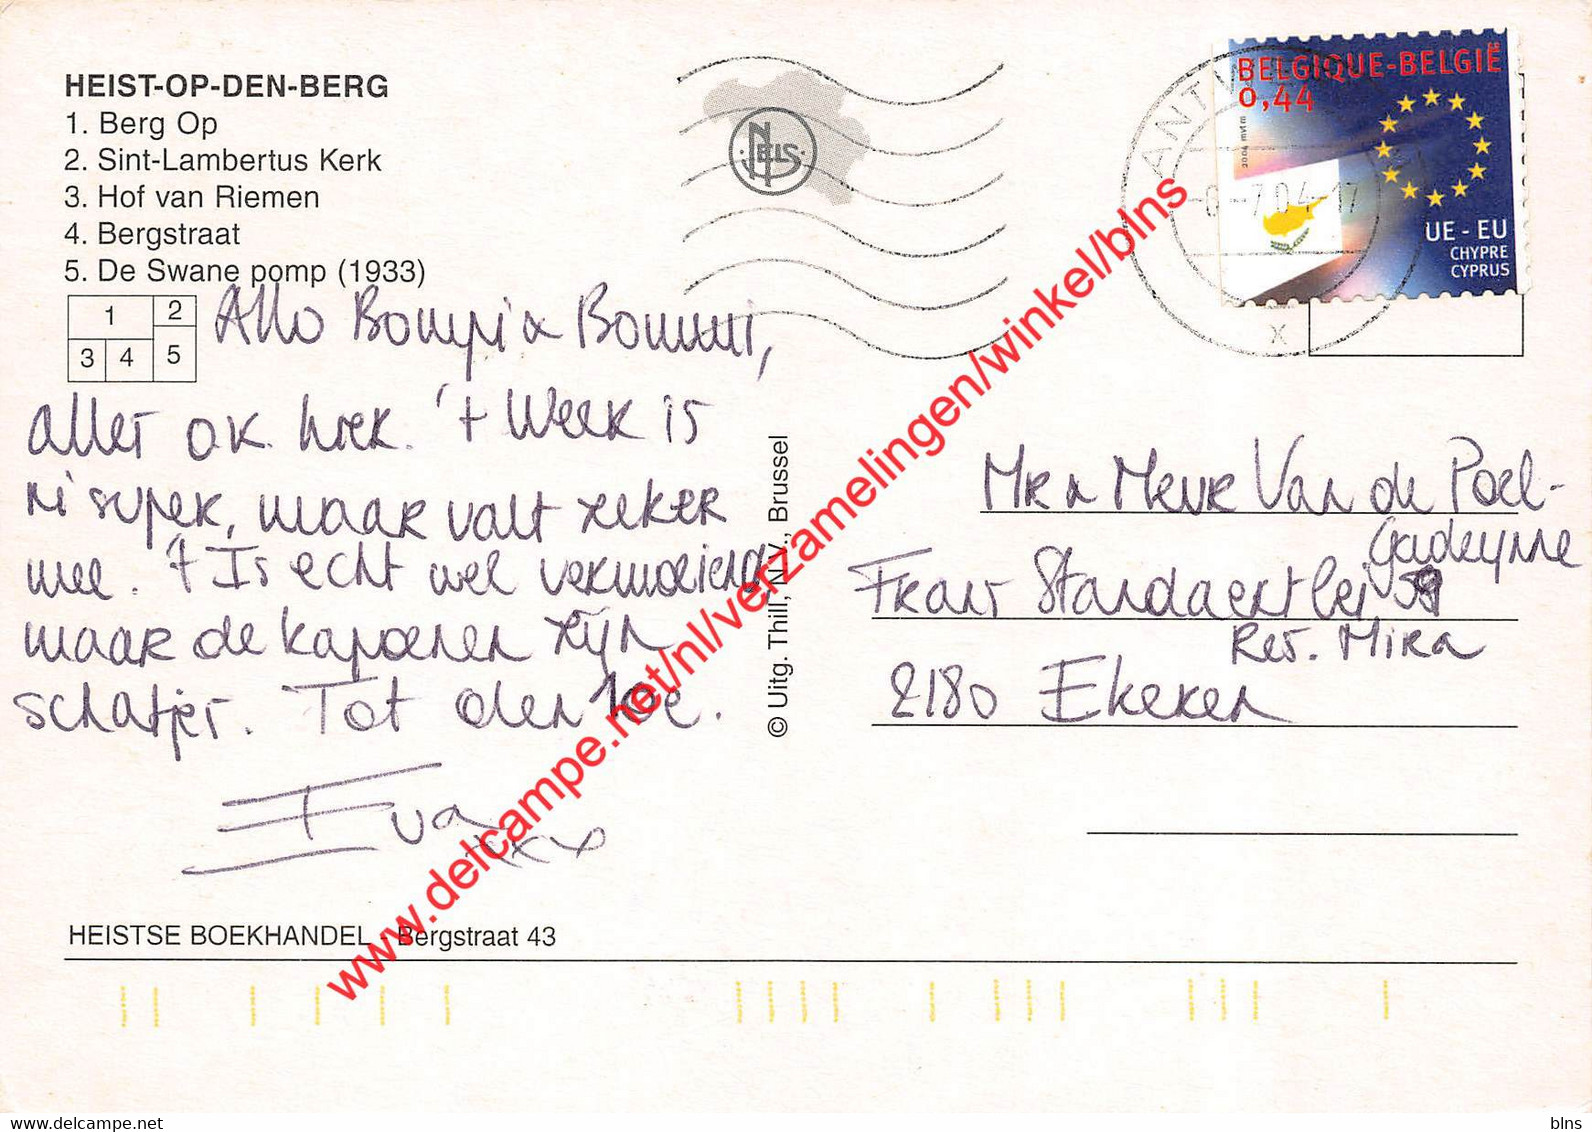 HEIST-OP-DEN-BERG
1. Berg Op
2. Sint-Lambertus Kerk
3. Hof van Riemen
4. Bergstraat
5. De Swane pomp (1933)
1 2
3 4 5
NELS
ANTW
7.04-17
X
BELGIQUE-BELGIË
0,44
2004 mvtm
UE - EU
CHYPRE
CYPRUS
Allo Bompi & Bommi,
alles ok hier. 't Week is
ni super, maar valt zeker
mee. 't Is echt wel vermoeiend
maar de kapoenen zijn
schatjes. Tot den 10e.
Eva
xxx
© Uitg. Thill, N.V., Brussel
Mr & Mevr Van de Poel-
Gadeyne
Frans Standaertlei 59
Res. Mira
2180 Ekeren
HEISTSE BOEKHANDEL - Bergstraat 43
www.delcampe.net/nl/verzamelingen/winkel/blns
blns